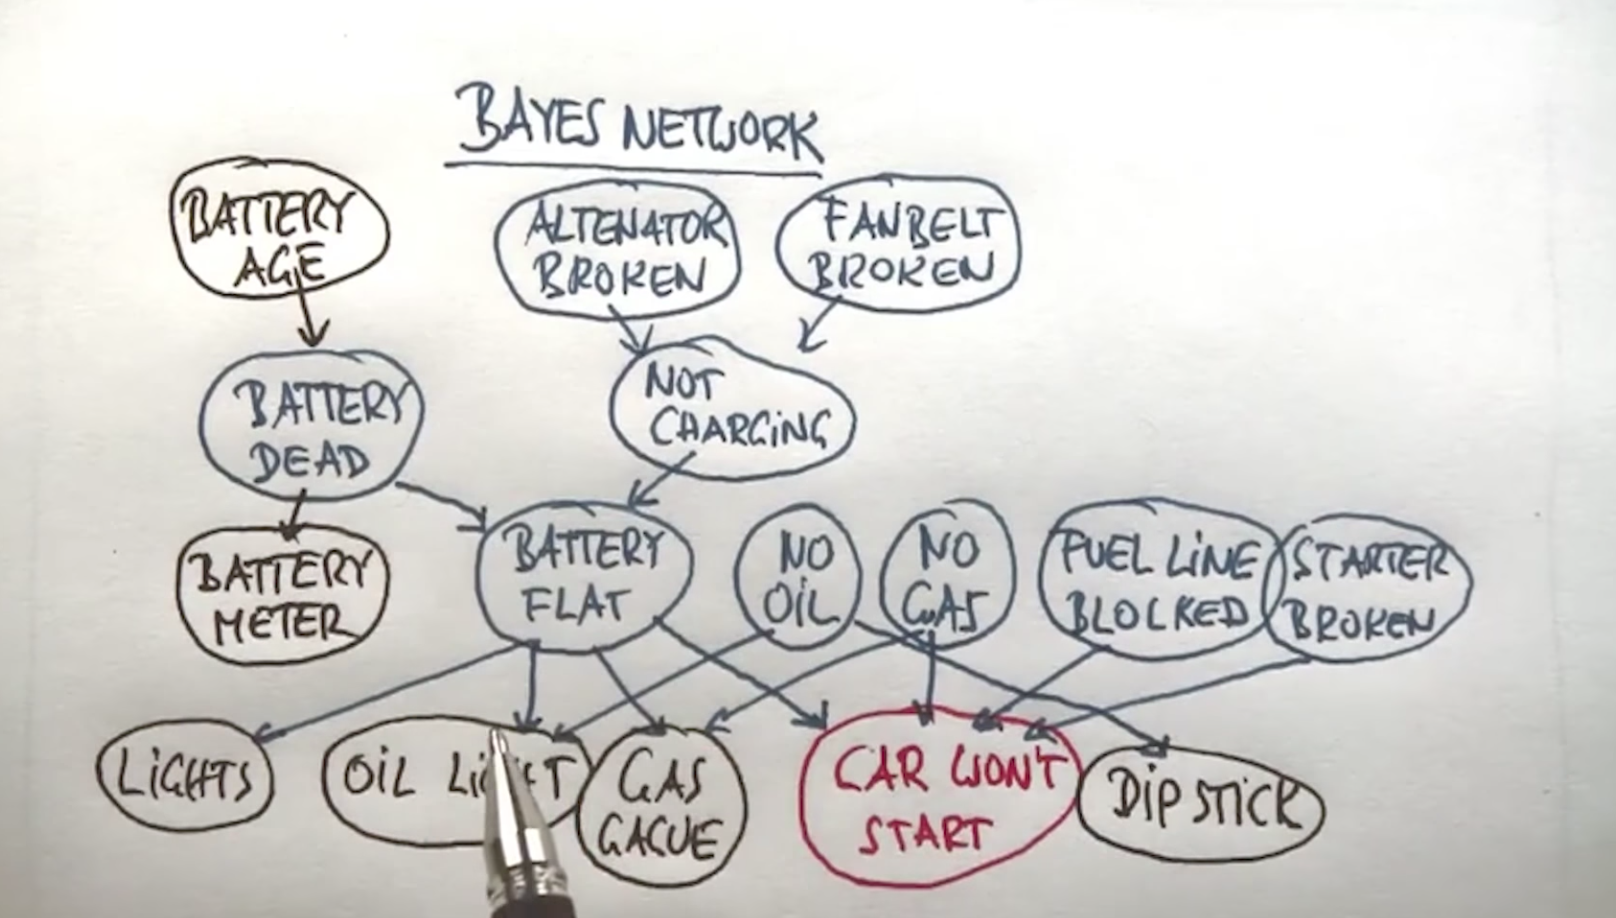 BAYES NETWORK
BATTERY
AGE
ALTENATOR
BROKEN
FANBELT
BROKEN
BATTERY
DEAD
NOT
CHARGING
BATTERY
METER
BATTERY
FLAT
NO
OIL
NO
GAS
FUEL LINE
BLOCKED
STARTER
BROKEN
LIGHTS
OIL
GAS
GAGUE
CAR WON'T
START
DIP STICK